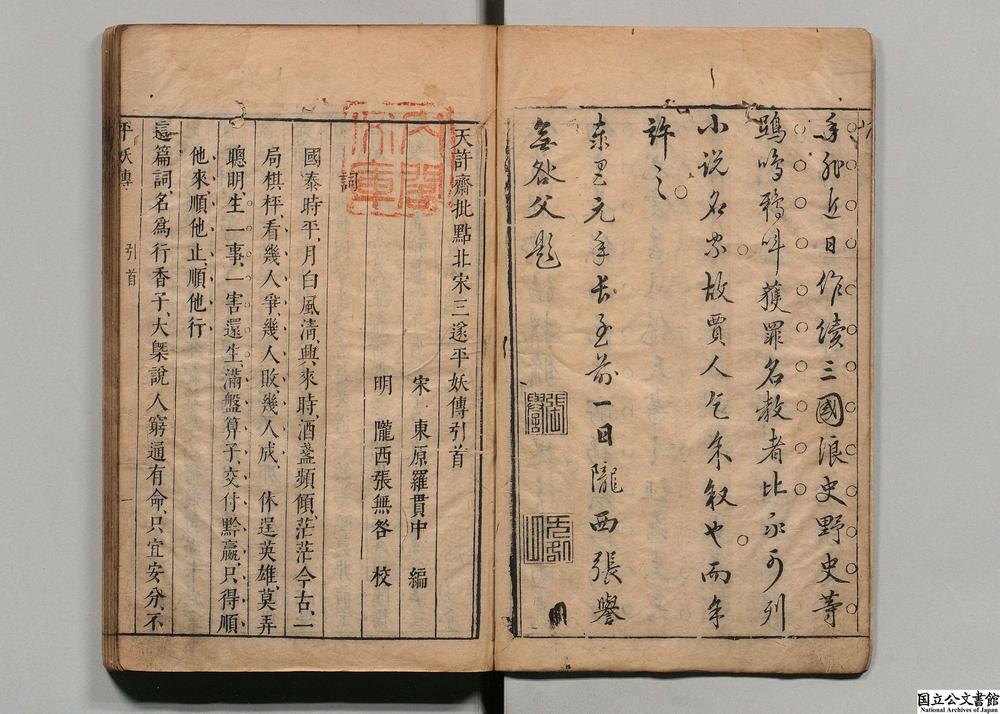 手非近日作續三國浪史野史等
鴟鳴鴉叫獲罪名教者比永可列
小說名家故賈人乞余叙也而余
許之
泰昌元年長至前一日隴西張譽
無咎父題
張譽
無咎
天許齋批點北宋三遂平妖傳引首
宋 東原羅貫中 編
明 隴西張無咎 校
詞
內閣文庫
國泰時平月白風清興來時酒盞頻傾茫茫今古一
局棋枰看幾人爭幾人敗幾人成 休逞英雄莫弄
聰明生一事一害還生滿盤算子交付黔嬴只得順
他來順他止順他行
這篇詞名爲行香子大槩說人窮通有命只宜安分不
平妖傳 引首 一
国立公文書館
National Archives of Japan